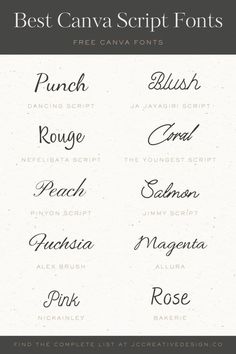 Best Canva Script Fonts
FREE CANVA FONTS
Punch Blush
DANCING SCRIPT JA JAYAGIRI SCRIPT
Rouge Coral
NEFELIBATA SCRIPT THE YOUNGEST SCRIPT
Peach Salmon
PINYON SCRIPT JIMMY SCRIPT
Fuchsia Magenta
ALEX BRUSH ALLURA
Pink Rose
NICKAINLEY BAKERIE
FIND THE COMPLETE LIST AT JCCREATIVEDESIGN.CO